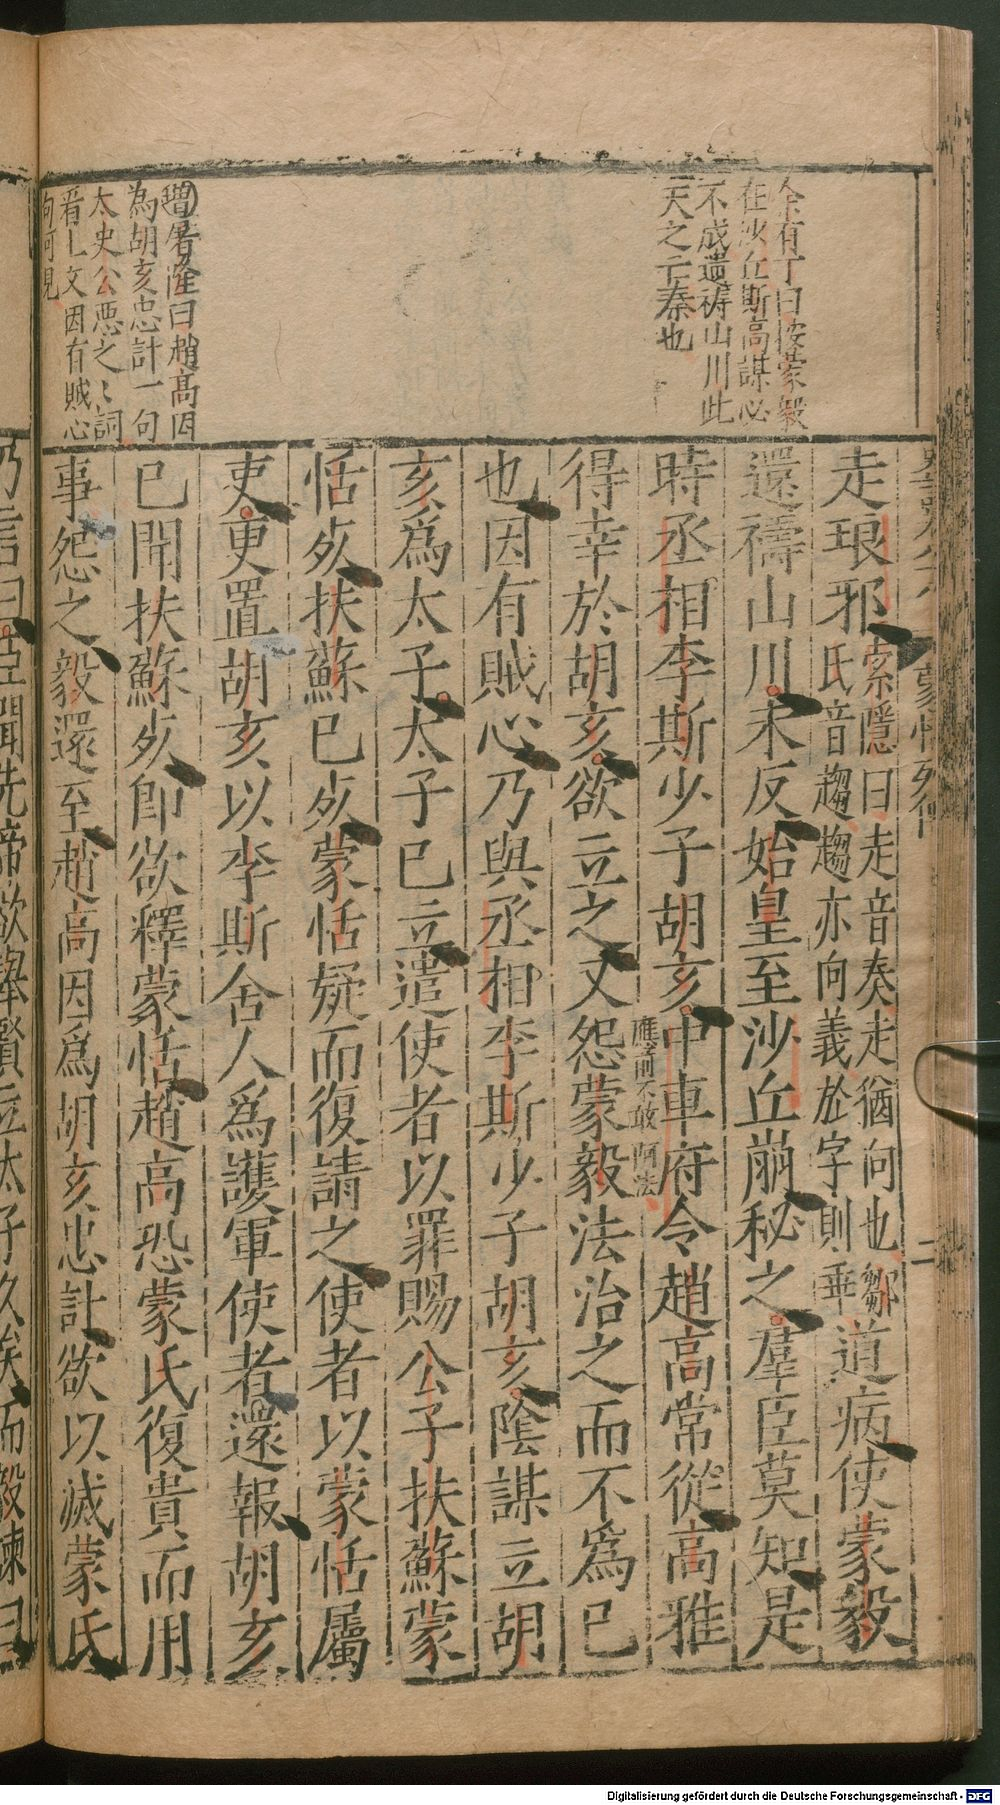 余有丁曰按蒙毅
在沙丘斯高謀必
不成遺禱山川此
天之亡秦也
屠隆曰趙高因
為胡亥忠計一句
太史公惡之之詞
看上文因有賊心
句可見
蒙恬列傳
二
走琅邪
索隱曰走音奏走猶向也鄒
氏音趨趨亦向義於字則乖
道病使蒙毅
還禱山川未反始皇至沙丘崩秘之羣臣莫知是
時丞相李斯少子胡亥中車府令趙高常從高雅
應前不敢阿法
得幸於胡亥欲立之又怨蒙毅法治之而不爲已
也因有賊心乃與丞相李斯少子胡亥陰謀立胡
亥爲太子太子已立遣使者以罪賜公子扶蘇蒙
恬死扶蘇已死蒙恬疑而復請之使者以蒙恬屬
吏更置胡亥以李斯舍人爲護軍使者還報胡亥
已聞扶蘇死即欲釋蒙恬趙高恐蒙氏復貴而用
事怨之毅還至趙高因爲胡亥忠計欲以滅蒙氏
乃言曰臣聞先帝欲舉賢立太子久矣而毅諫曰
Digitalisierung gefördert durch die Deutsche Forschungsgemeinschaft - DFG